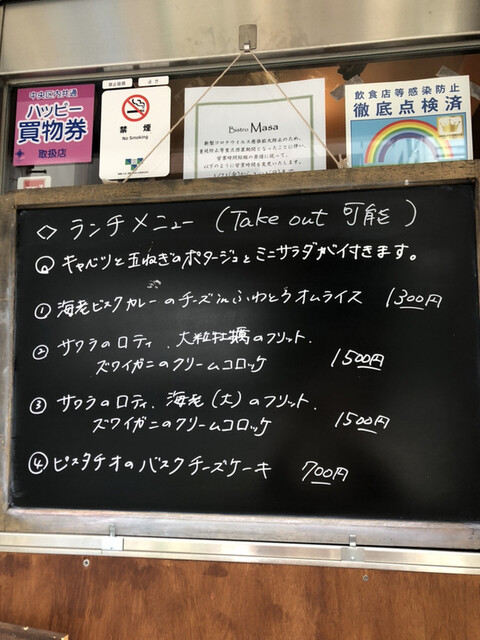 中央区内共通
ハッピー
買物券
取扱店
禁煙
No Smoking
Bistro Masa
新型コロナウイルス感染拡大防止のため、
以下のように営業時間を変更いたします。
飲食店等感染防止
徹底点検済
◇ ランチメニュー (Take out 可能)
キャベツと玉ねぎのポタージュとミニサラダが付きます。
① 海老ビスクカレーのチーズinふわとろオムライス 1300円
② サワラのロティ、大粒牡蠣のフリット、
ズワイガニのクリームコロッケ 1500円
③ サワラのロティ、海老(大)のフリット、
ズワイガニのクリームコロッケ 1500円
④ ピスタチオのバスクチーズケーキ 700円